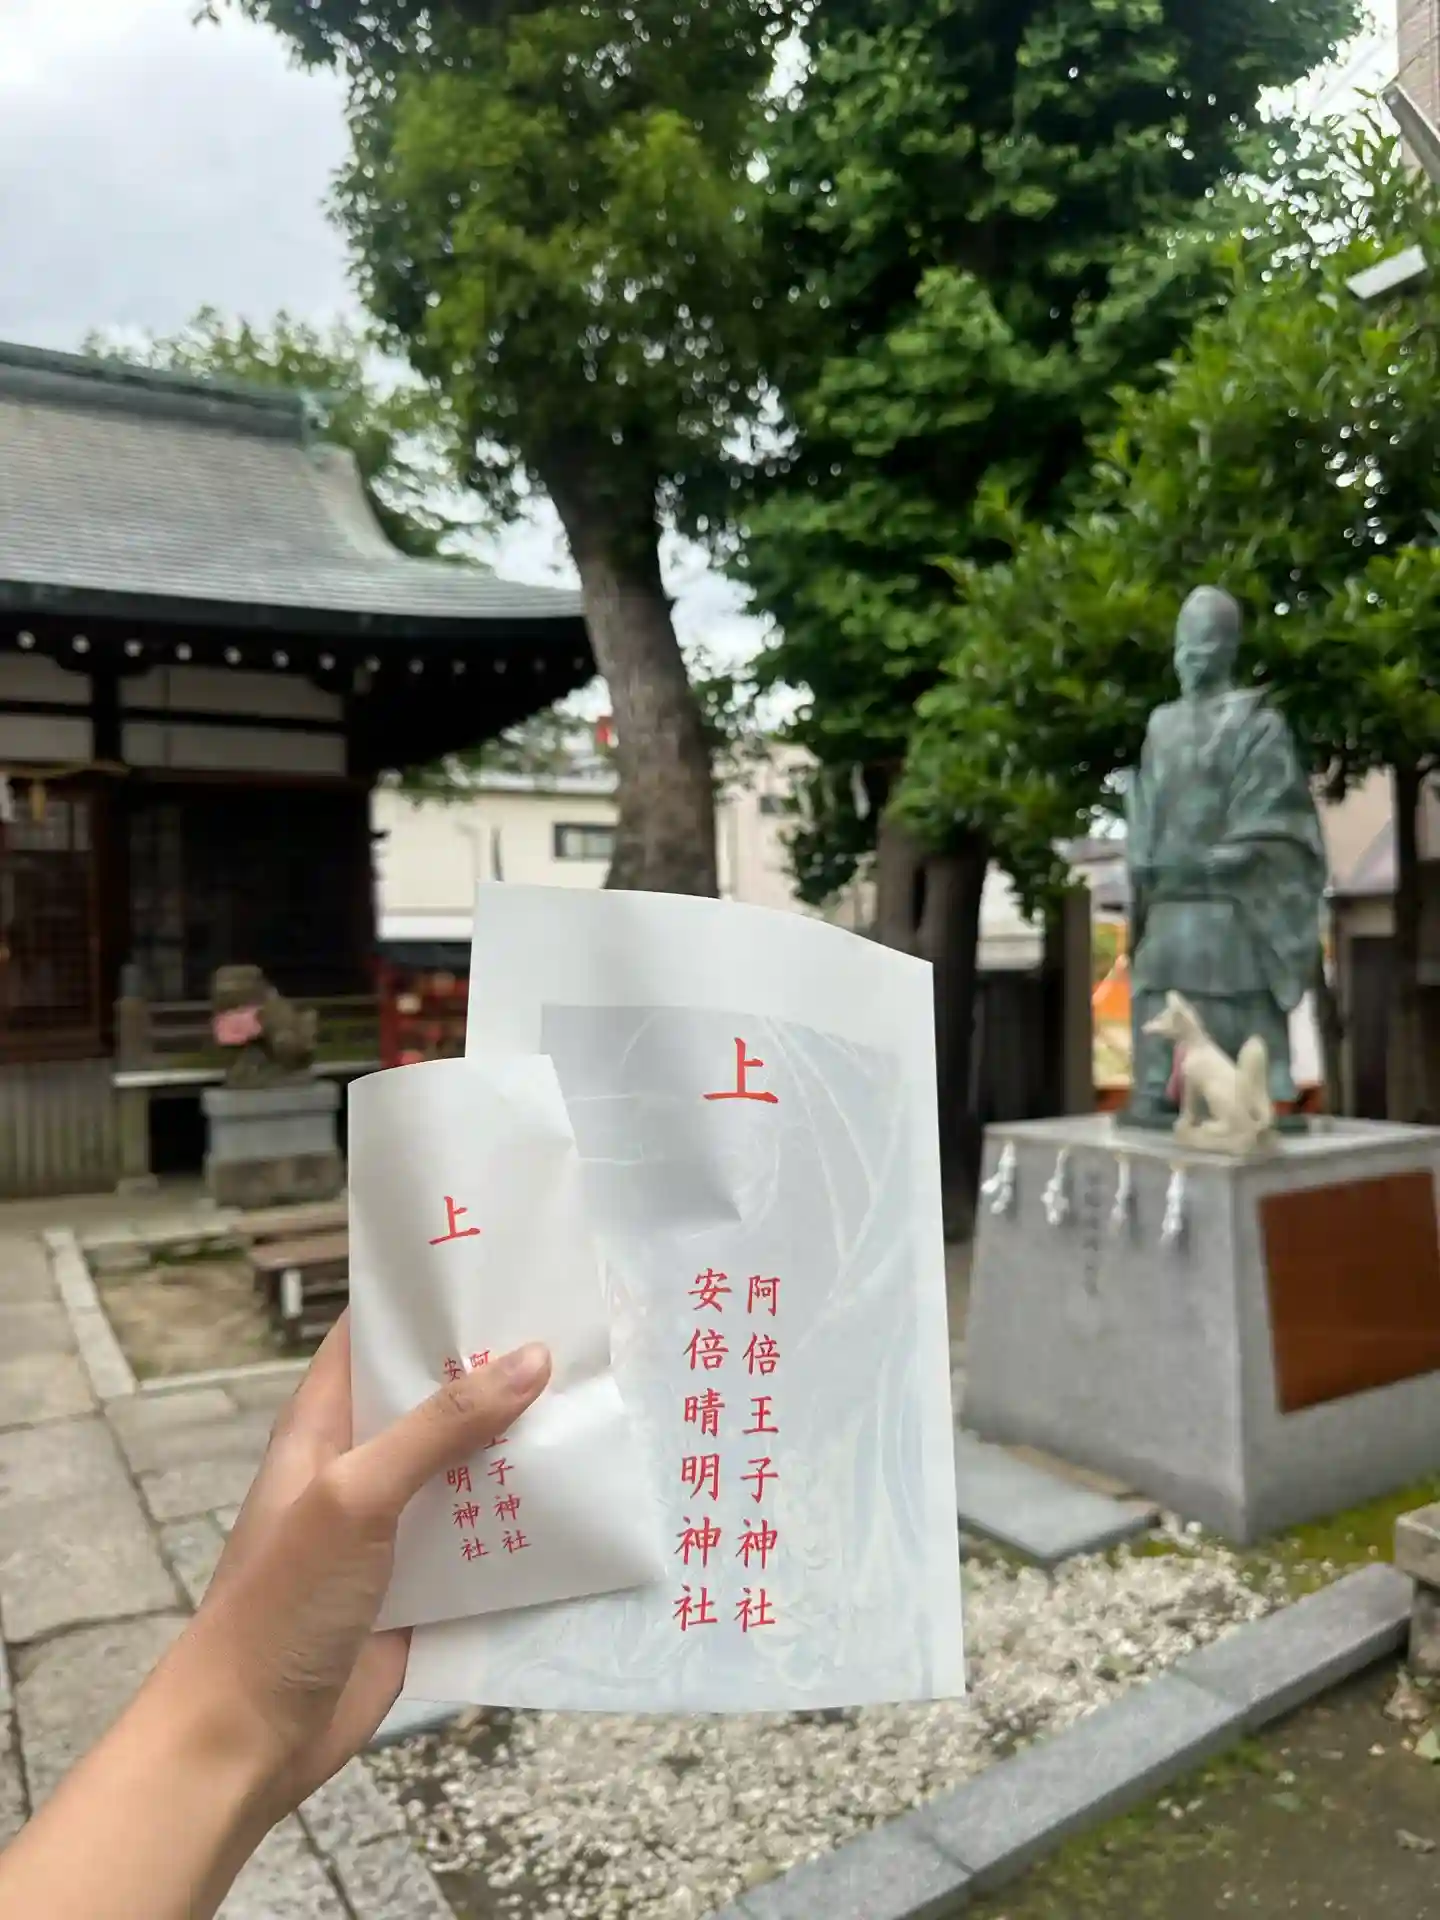 上
阿倍王子神社
安倍晴明神社
上
阿 王子神社
安 明神社